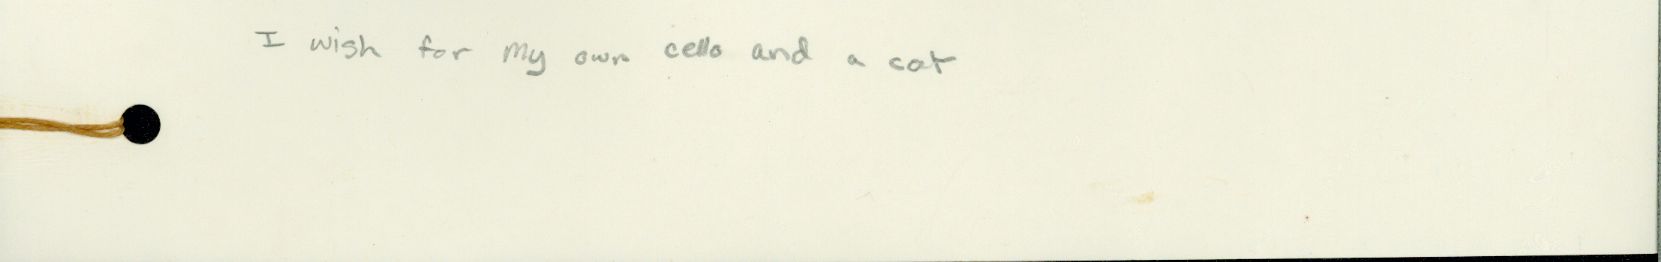 I wish for my own cello and a cat